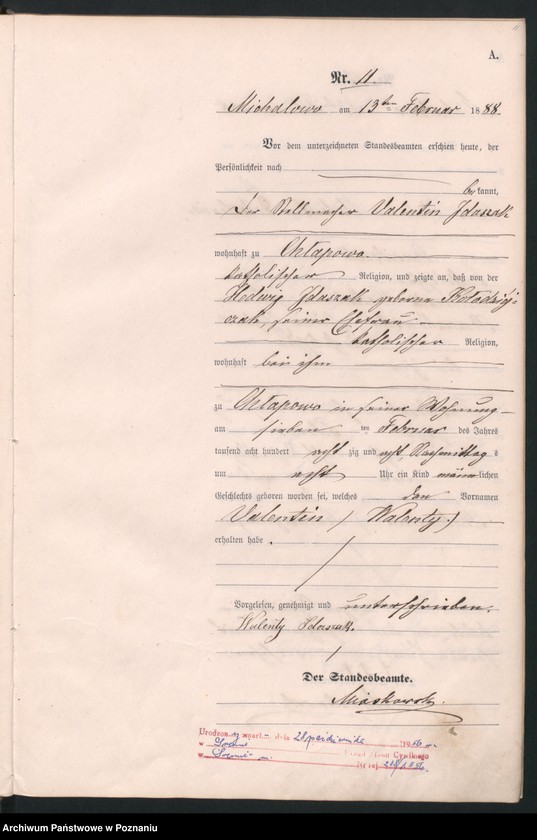 A.
Nr. 11.
Michalowo am 13ten Februar 1888.
Vor dem unterzeichneten Standesbeamten erschien heute, der
Persönlichkeit nach
bekannt,
der Stellmacher Valentin Idaszak
wohnhaft zu Chłapowo
katholischer Religion, und zeigte an, daß von der
Hedwig Idaszak geborne Kołodziej-
czak, seiner Ehefrau
katholischer Religion,
wohnhaft bei ihm
zu Chłapowo in seiner Wohnung
am sieben ten Februar des Jahres
tausend acht hundert acht zig und acht, Nachmittag s
um acht Uhr ein Kind männlichen
Geschlechts geboren worden sei, welches den Vornamen
Valentin (Walenty)
erhalten habe.
Vorgelesen, genehmigt und unterschrieben.
Walenty Idaszak.
Der Standesbeamte.
Miaskowski.
Urodzon y zmarł dnia 28 październik 1956 r.
w
w Urząd Stanu Cywilnego
Nr rej.
Archiwum Państwowe w Poznaniu